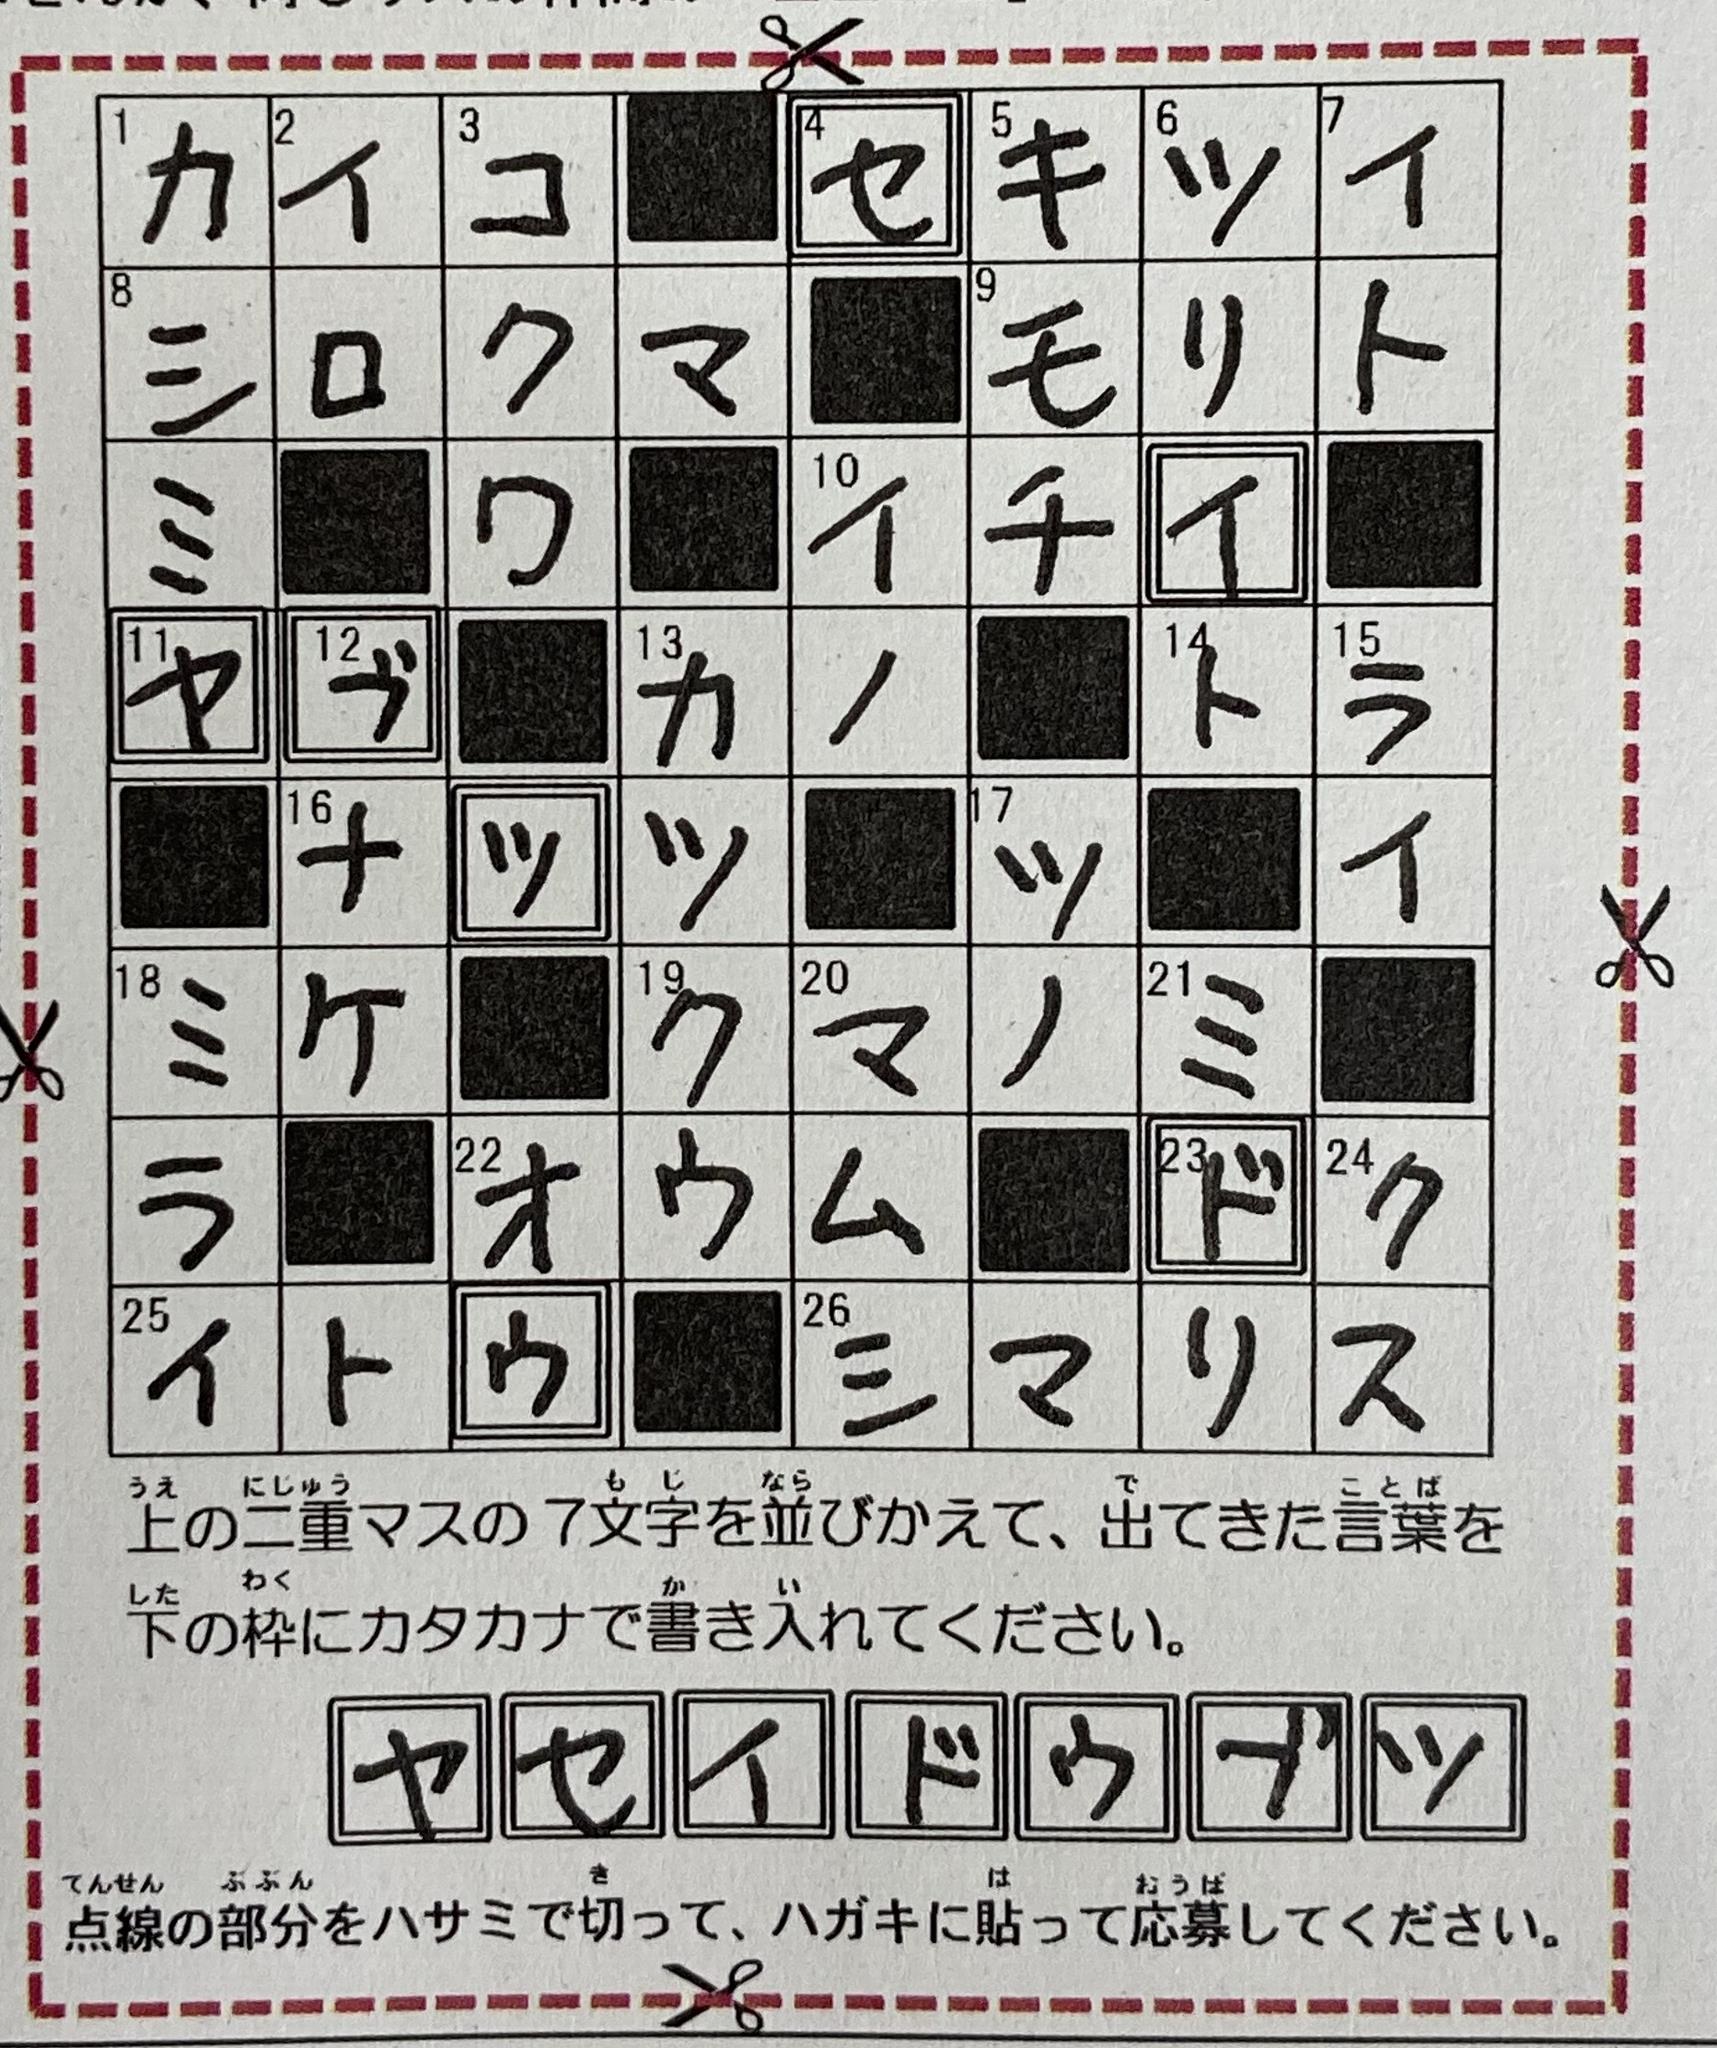 1 カ 2 イ 3 コ ■ 4 セ 5 キ 6 ツ 7 イ
8 シ ロ ク マ ■ 9 モ リ ト
ミ ■ ワ ■ 10 イ チ イ ■
11 ヤ 12 ブ ■ 13 カ ノ ■ 14 ト 15 ラ
■ 16 ナ ッ ツ ■ 17 ツ ■ イ
18 ミ ケ ■ 19 ク 20 マ ノ 21 ミ ■
ラ ■ 22 オ ウ ム ■ 23 ド 24 ク
25 イ ト ウ ■ 26 シ マ リ ス
うえ にじゅう もじ なら で ことば
上の二重マスの7文字を並びかえて、出てきた言葉を
した わく か い
下の枠にカタカナで書き入れてください。
ヤ セ イ ド ウ ブ ツ
てんせん ぶぶん き は おうぼ
点線の部分をハサミで切って、ハガキに貼って応募してください。